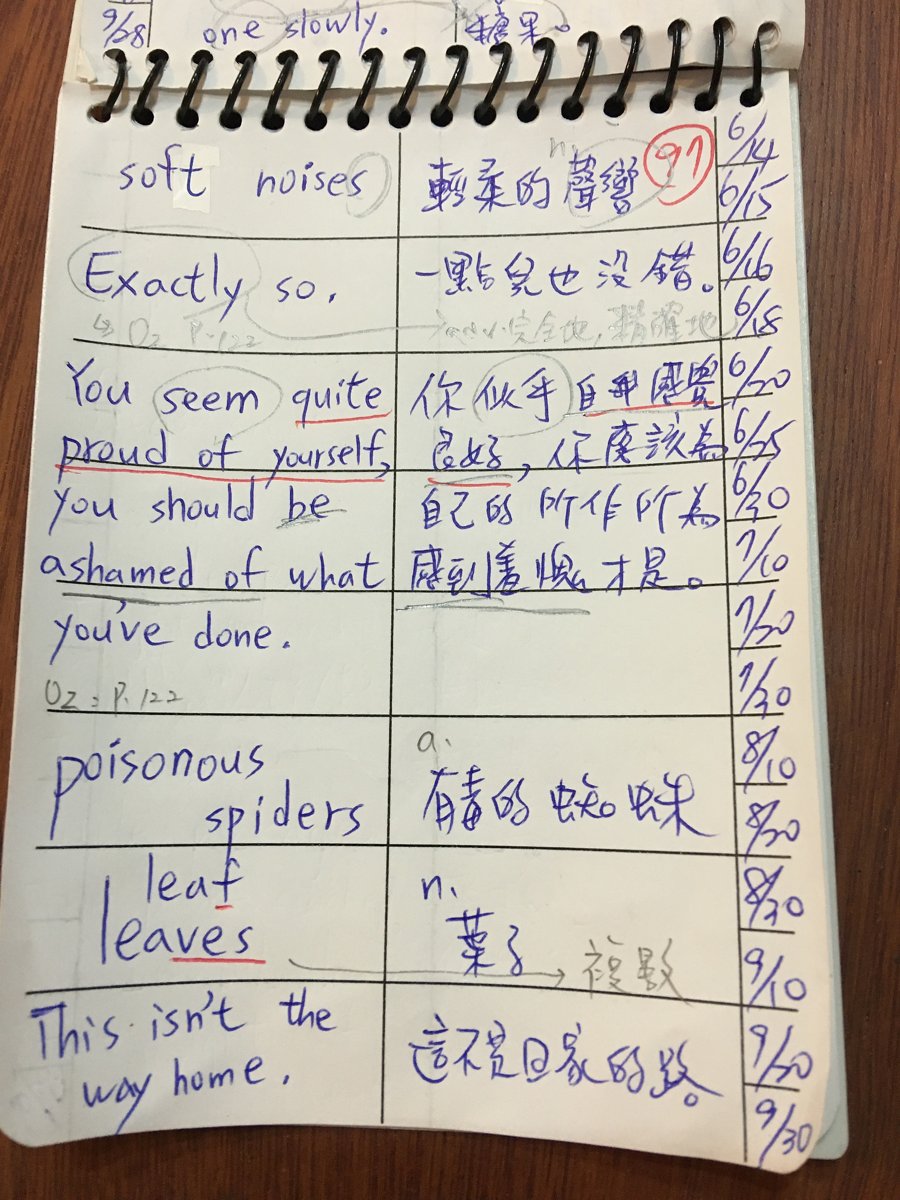 9/28
one slowly.
糖果。
soft noises
n.
輕柔的聲響
97
Exactly so.
↳ Oz P.122
一點兒也沒錯。
adv.完全地,精確地
You seem quite
proud of yourself,
you should be
ashamed of what
you've done.
Oz : P.122
你似乎自我感覺
良好,你應該為
自己的所作所為
感到羞愧才是。
poisonous
spiders
a.
有毒的蜘蛛
leaf
leaves
n.
葉子
→ 複數
This isn't the
way home.
這不是回家的路。
6/14
6/15
6/16
6/18
6/20
6/25
6/30
7/10
7/20
7/30
8/10
8/20
8/30
9/10
9/20
9/30